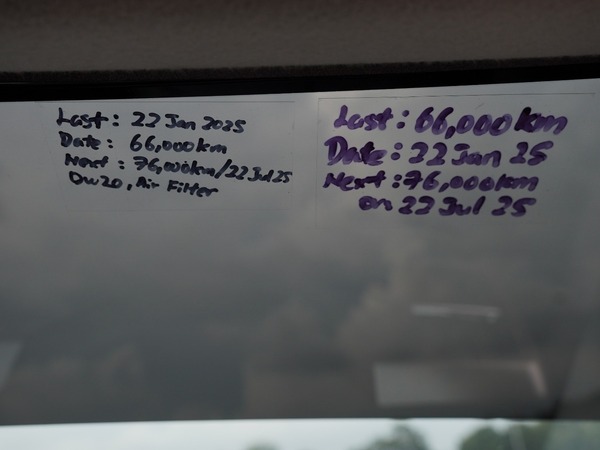 Last: 22 Jan 2025
Date: 66,000km
Next: 76,000km/22Jul25
0W20, Air Filter
Last: 66,000km
Date: 22 Jan 25
Next: 76,000km
on 22 Jul 25